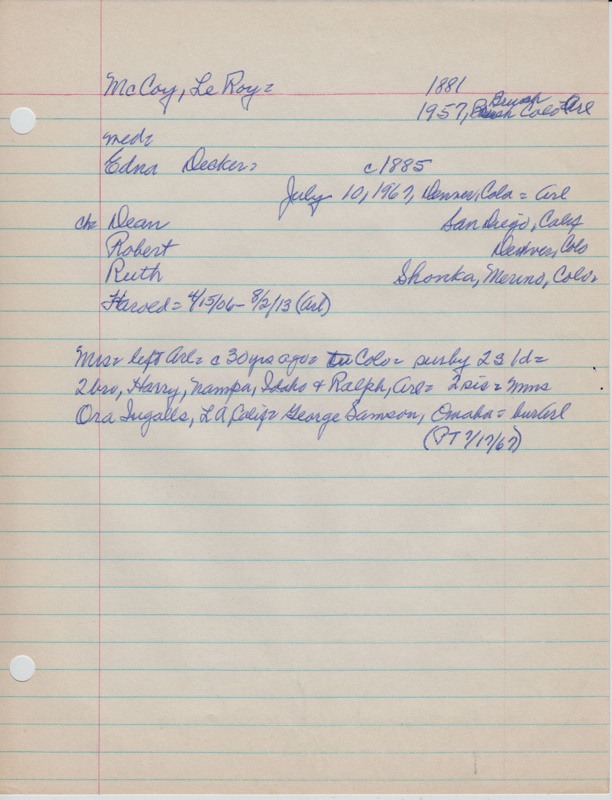 McCoy, Le Roy = 1881
1957, Brush Colo = Arl
med:
Edna Decker = c1885
July 10, 1967, Denver, Colo = Arl
ch: Dean San Diego, Calif
Robert Denver, Colo
Ruth Shonka, Merino, Colo =
Harold = 4/15/06 - 8/2/13 (Arl)
Mrs = left Arl = c 30 yrs ago = to Colo = surv by 2s 1d =
2 bro, Harry, Nampa, Idaho & Ralph, Arl = 2 sis = Mmes
Ora Ingalls, LA Calif = George Samson, Omaha = bur Arl
(PT 7/17/67)